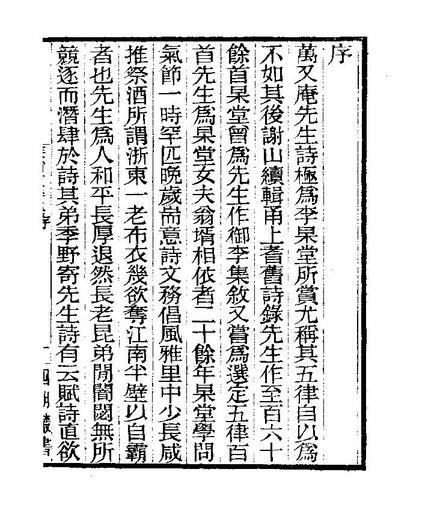 序
萬又庵先生詩極爲李杲堂所賞尤稱其五律自以爲
不如其後謝山續輯甬上耆舊詩錄先生作至百六十
餘首杲堂曾爲先生作御李集敘又嘗爲選定五律百
首先生爲杲堂女夫翁壻相依者二十餘年杲堂學問
氣節一時罕匹晚歲耑意詩文務倡風雅里中少長咸
推祭酒所謂浙東一老布衣幾欲奪江南半壁以自霸
者也先生爲人和平長厚退然長老昆弟閒闇闔無所
競逐而潛肆於詩其弟季野寄先生詩有云賦詩直欲
序
一四明叢書